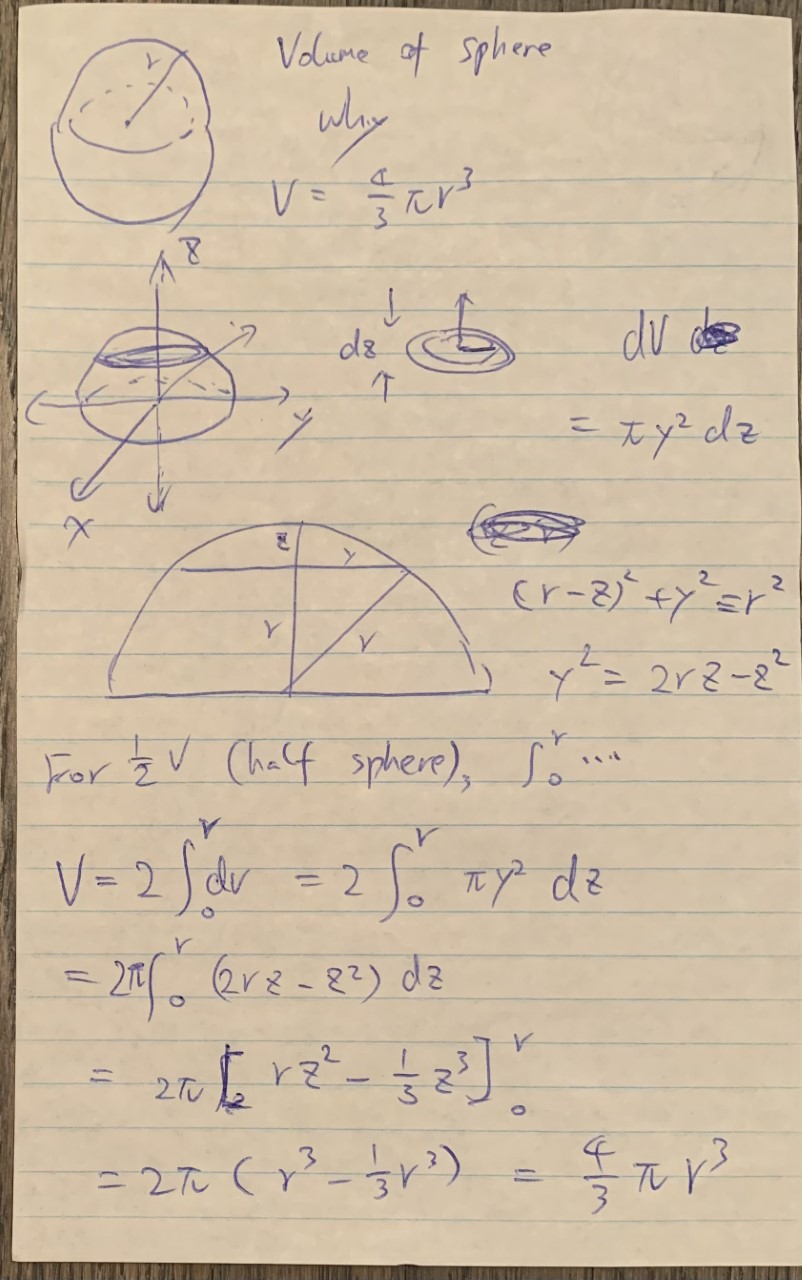 r
Volume of sphere
Why
V = 4/3 πr³
z
y
x
dz
dV
= πy² dz
z
y
r
r
(r-z)² + y² = r²
y² = 2rz - z²
For 1/2 V (half sphere), ∫₀ʳ ....
V = 2 ∫₀ʳ dv = 2 ∫₀ʳ πy² dz
= 2π ∫₀ʳ (2rz - z²) dz
= 2π [ rz² - 1/3 z³ ]₀ʳ
= 2π ( r³ - 1/3 r³ ) = 4/3 π r³